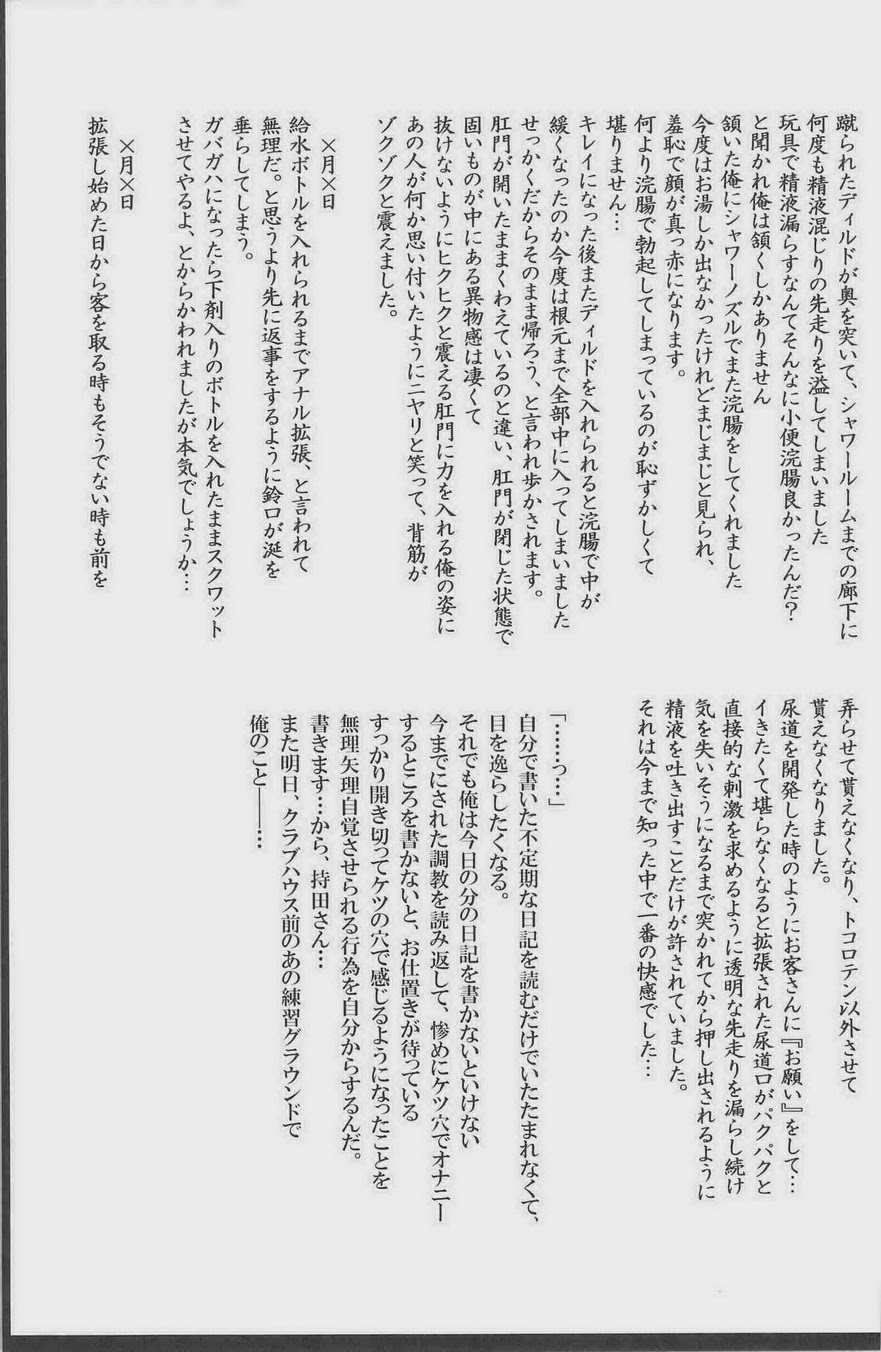 蹴られたディルドが奥を突いて、シャワールームまでの廊下に
何度も精液混じりの先走りを溢してしまいました
玩具で精液漏らすなんてそんなに小便浣腸良かったんだ?
と聞かれ俺は頷くしかありません
頷いた俺にシャワーノズルでまた浣腸をしてくれました
今度はお湯しか出なかったけれどまじまじと見られ、
羞恥で顔が真っ赤になります。
何より浣腸で勃起してしまっているのが恥ずかしくて
堪りません…
キレイになった後またディルドを入れられると浣腸で中が
緩くなったのか今度は根元まで全部中に入ってしまいました
せっかくだからそのまま帰ろう、と言われ歩かされます。
肛門が開いたままくわえているのと違い、肛門が閉じた状態で
固いものが中にある異物感は凄くて
抜けないようにヒクヒクと震える肛門に力を入れる俺の姿に
あの人が何か思い付いたようにニヤリと笑って、背筋が
ゾクゾクと震えました。
×月×日
給水ボトルを入れられるまでアナル拡張、と言われて
無理だ。と思うより先に返事をするように鈴口が涎を
垂らしてしまう。
ガバガバになったら下剤入りのボトルを入れたままスクワット
させてやるよ、とからかわれましたが本気でしょうか…
×月×日
拡張し始めた日から客を取る時もそうでない時も前を
弄らせて貰えなくなり、トコロテン以外させて
貰えなくなりました。
尿道を開発した時のようにお客さんに『お願い』をして…
イきたくて堪らなくなると拡張された尿道口がパクパクと
直接的な刺激を求めるように透明な先走りを漏らし続け
気を失いそうになるまで突かれてから押し出されるように
精液を吐き出すことだけが許されていました。
それは今まで知った中で一番の快感でした…
「……っ…」
自分で書いた不定期な日記を読むだけでいたたまれなくて、
目を逸らしたくなる。
それでも俺は今日の分の日記を書かないといけない
今までにされた調教を読み返して、惨めにケツ穴でオナニー
するところを書かないと、お仕置きが待っている
すっかり開き切ってケツの穴で感じるようになったことを
無理矢理自覚させられる行為を自分からするんだ。
書きます…から、持田さん…
また明日、クラブハウス前のあの練習グラウンドで
俺のこと――…